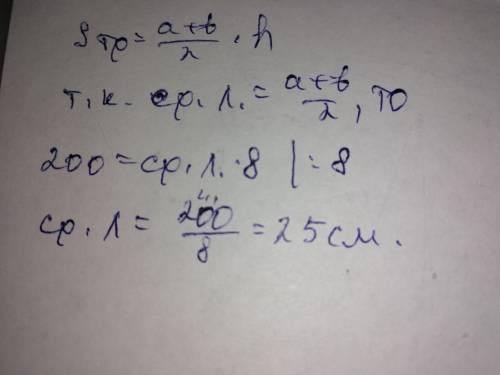 Sтр = a+b/2 · h
т.к. ср.л. = a+b/2, то
200 = ср.л. · 8 | : 8
ср.л = 200/8 = 25 см.